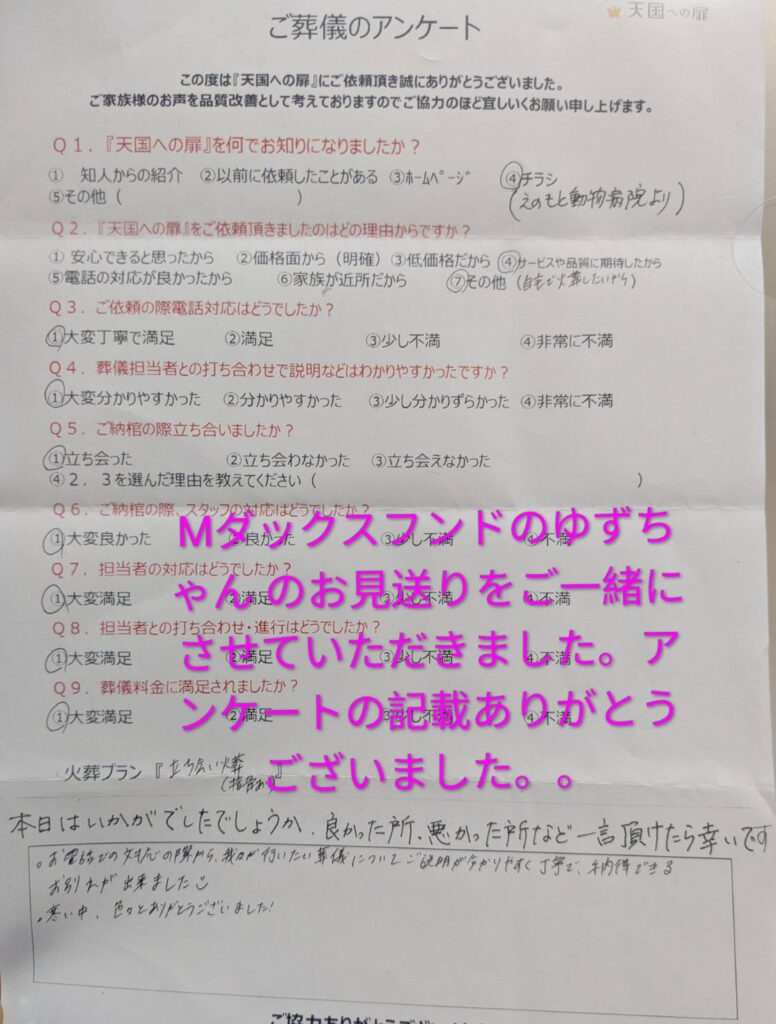 天国への扉
ご葬儀のアンケート
この度は『天国への扉』にご依頼頂き誠にありがとうございました。
ご家族様のお声を品質改善として考えておりますのでご協力のほど宜しいくお願い申し上げます。
Q1．『天国への扉』を何でお知りになりましたか？
① 知人からの紹介 ②以前に依頼したことがある ③ﾎｰﾑﾍﾟｰｼﾞ ④チラシ
⑤その他（ ） (えのもと動物病院より)
Q2．『天国への扉』をご依頼頂きましたのはどの理由からですか？
① 安心できると思ったから ②価格面から（明確） ③低価格だから ④サービスや品質に期待したから
⑤電話の対応が良かったから ⑥家族が近所だから ⑦その他（自宅で火葬したいから）
Q3．ご依頼の際電話対応はどうでしたか？
①大変丁寧で満足 ②満足 ③少し不満 ④非常に不満
Q4．葬儀担当者との打ち合わせで説明などはわかりやすかったですか？
①大変分かりやすかった ②分かりやすかった ③少し分かりずらかった ④非常に不満
Q5．ご納棺の際立ち合いましたか？
①立ち会った ②立ち会わなかった ③立ち会えなかった
④2．3を選んだ理由を教えてください（ ）
Q6．ご納棺の際、スタッフの対応はどうでしたか？
①大変良かった ②良かった ③少し不満 ④不満
Q7．担当者の対応はどうでしたか？
①大変満足 ②満足 ③少し不満 ④不満
Q8．担当者との打ち合わせ・進行はどうでしたか？
①大変満足 ②満足 ③少し不満 ④不満
Q9．葬儀料金に満足されましたか？
①大変満足 ②満足 ③少し不満 ④不満
Mダックスフンドのゆずち
ゃんのお見送りをご一緒に
させていただきました。ア
ンケートの記載ありがとう
ございました。。
火葬プラン『立ち会い火葬』
(拾骨あり)
本日はいかがでしたでしょうか、良かった所、悪かった所など一言頂けたら幸いです
。お電話での対応の際から、我々が行いたい葬儀についてご説明が分かりやすく丁寧で、納得できる
お別れが出来ました
。寒い中、色々とありがとうございました!